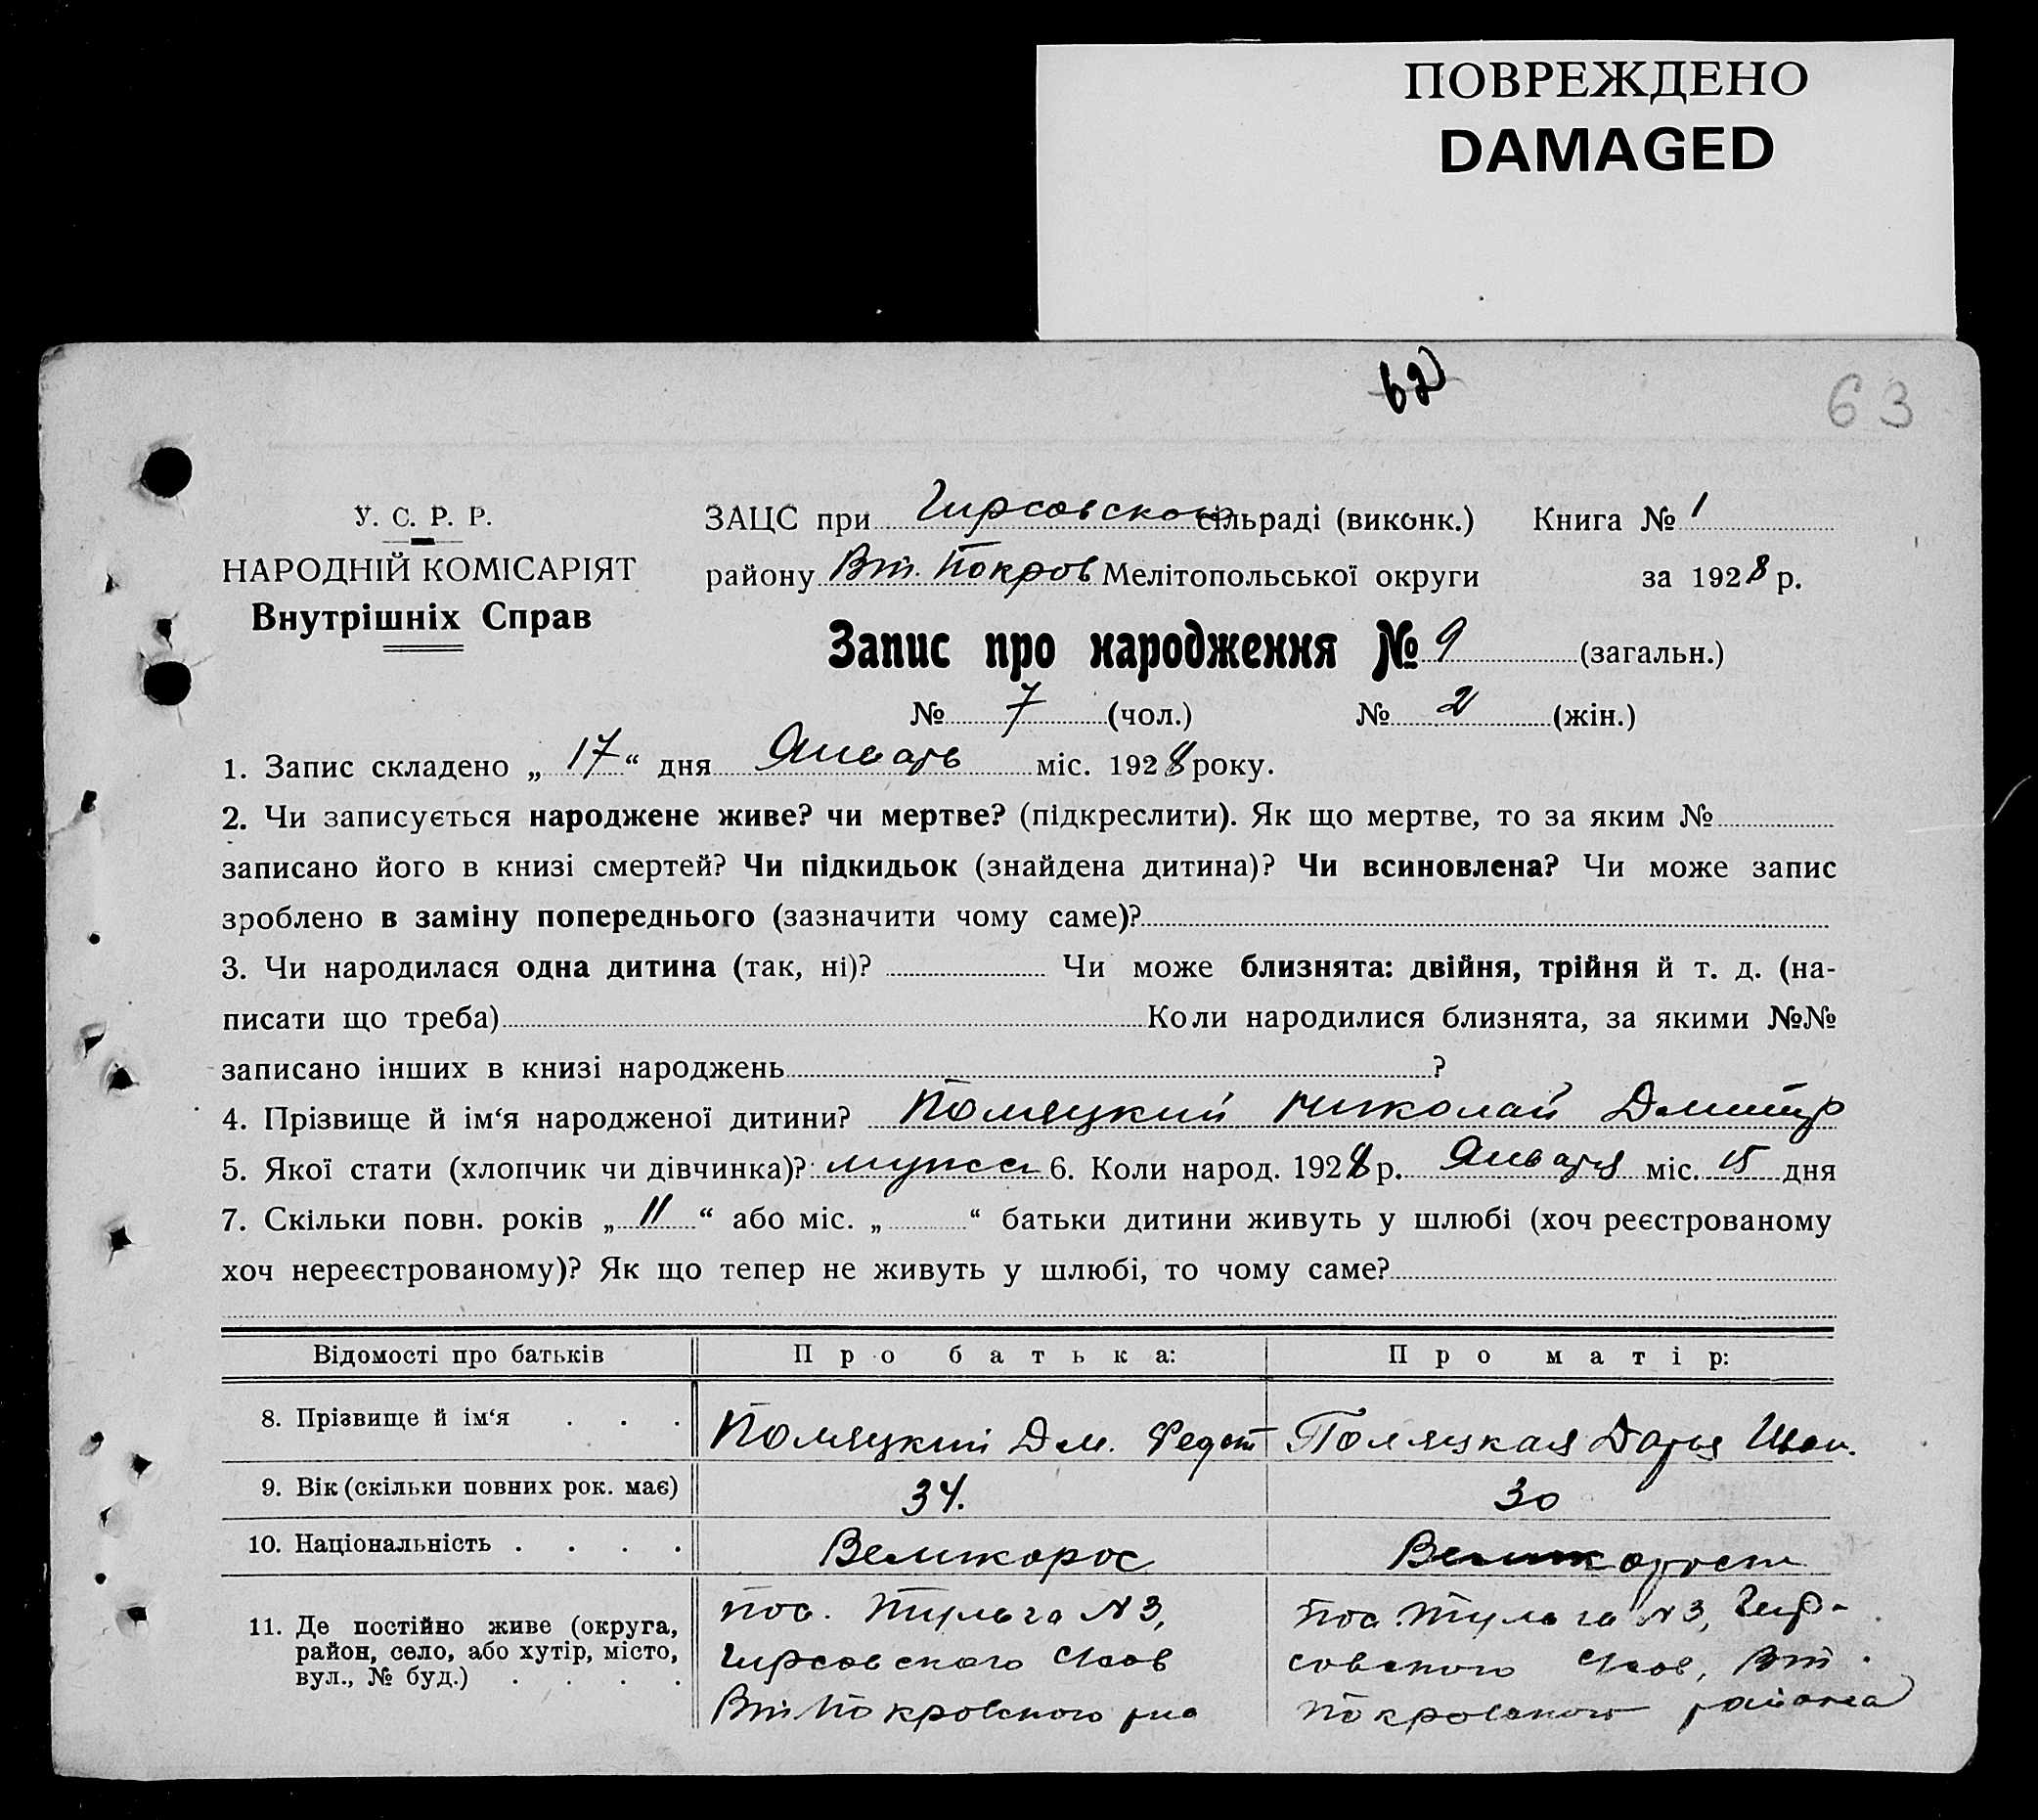 ПОВРЕЖДЕНО
DAMAGED
62
63
У. С. Р. Р.
НАРОДНІЙ КОМІСАРІЯТ
Внутрішніх Справ
ЗАЦС при Гирсовском сільраді (виконк.) Книга № 1
району Вт. Покров Мелітопольської округи за 1928 р.
Запис про народження № 9 (загальн.)
№ 7 (чол.) № 2 (жін.)
1. Запис складено „ 17 “ дня Январь міс. 1928 року.
2. Чи записується народжене живе? чи мертве? (підкреслити). Як що мертве, то за яким №
записано його в книзі смертей? Чи підкидьок (знайдена дитина)? Чи всиновлена? Чи може запис
зроблено в заміну попереднього (зазначити чому саме)?
3. Чи народилася одна дитина (так, ні)? Чи може близнята: двійня, трійня й т. д. (на-
писати що треба) Коли народилися близнята, за якими №№
записано інших в книзі народжень ?
4. Прізвище й ім‘я народженої дитини? Поляцкий Николай Дмитр
5. Якої стати (хлопчик чи дівчинка)? мужск 6. Коли народ. 1928 р. Января міс. 15 дня
7. Скільки повн. років „ 11 “ або міс. „ “ батьки дитини живуть у шлюбі (хоч реєстрованому
хоч нереєстрованому)? Як що тепер не живуть у шлюбі, то чому саме?
Відомості про батьків Про батька: Про матір:
8. Прізвище й ім‘я . . . Поляцкий Дм. Федот Поляцкая Дарья Иван.
9. Вік (скільки повних рок. має) 34. 30
10. Національність . . . . Великорос Великоросс
11. Де постійно живе (округа, район, село, або хутір, місто, вул., № буд.) . . . .
пос. Тульга N 3,
Гирсовского
Вт Покровского
пос. Тульга N 3, Гир-
совского Вт.
Покровского района